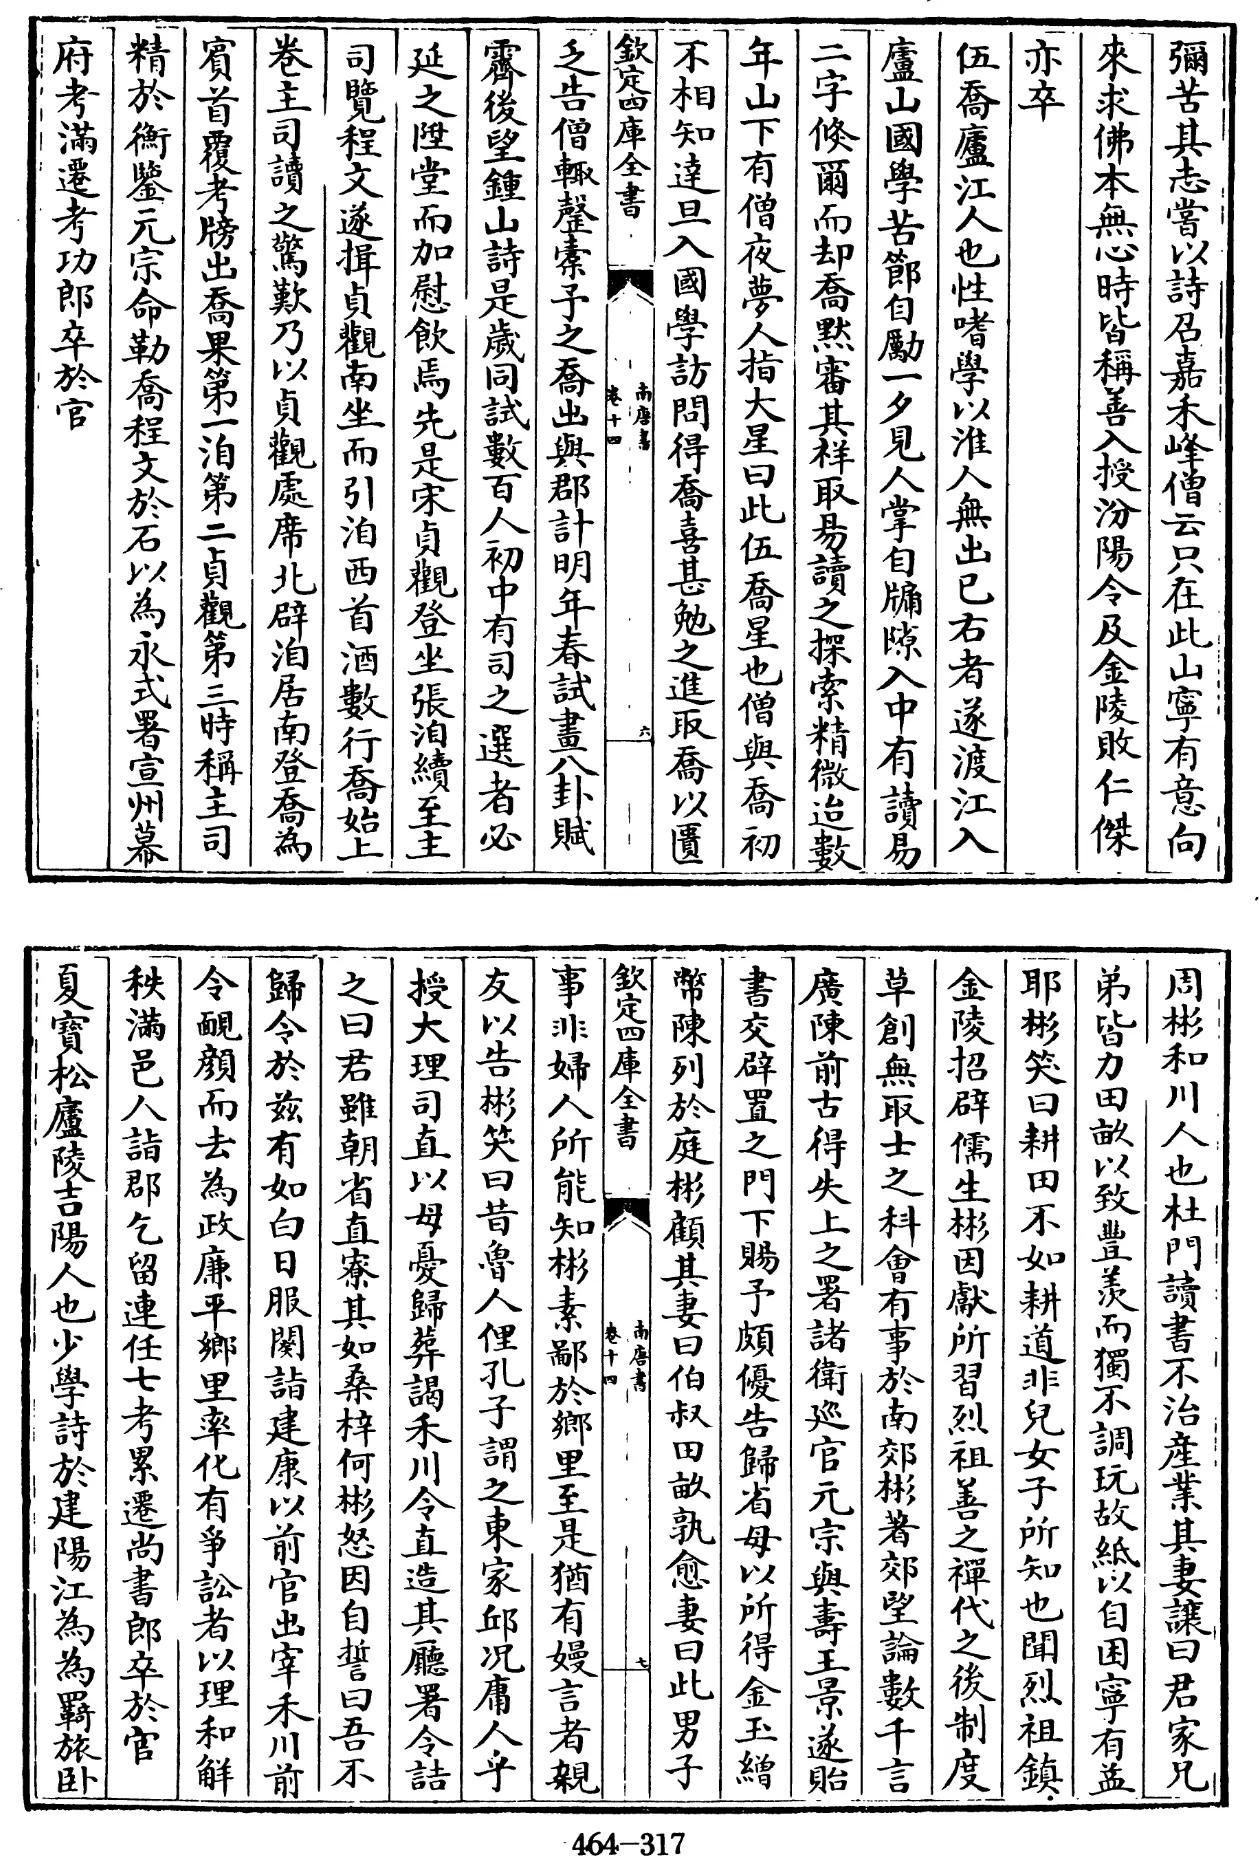 彌苦其志嘗以詩召嘉禾峰僧云只在此山寧有意向
來求佛本無心時皆稱善入授汾陽令及金陵敗仁傑
亦卒
伍喬廬江人也性嗜學以淮人無出已右者遂渡江入
廬山國學苦節自勵一夕見人掌自牖隙入中有讀易
二字倐爾而却喬黙審其祥取易讀之探索精微迨數
年山下有僧夜夢人指大星曰此伍喬星也僧與喬初
不相知達旦入國學訪問得喬喜甚勉之進取喬以匱
欽定四庫全書
南唐書
卷十四
六
乏告僧輙罄橐予之喬出與郡計明年春試畫八卦賦
霽後望鍾山詩是歲同試數百人初中有司之選者必
延之陞堂而加慰飲焉先是宋貞觀登坐張洎續至主
司覽程文遂揖貞觀南坐而引洎西首酒數行喬始上
卷主司讀之驚歎乃以貞觀處席北辟洎居南登喬為
賓首覆考牓出喬果第一洎第二貞觀第三時稱主司
精於衡鑒元宗命勒喬程文於石以為永式署宣州幕
府考滿遷考功郎卒於官
周彬和川人也杜門讀書不治産業其妻讓曰君家兄
弟皆力田畝以致豐羨而獨不調玩故紙以自困寧有益
耶彬笑曰耕田不如耕道非兒女子所知也聞烈祖鎮
金陵招辟儒生彬因獻所習烈祖善之禪代之後制度
草創無取士之科會有事於南郊彬著郊望論數千言
廣陳前古得失上之署諸衛廵官元宗與壽王景遂貽
書交辟置之門下賜予頗優告歸省母以所得金玉繒
幣陳列於庭彬顧其妻曰伯叔田畝孰愈妻曰此男子
欽定四庫全書
南唐書
卷十四
七
事非婦人所能知彬素鄙於鄉里至是猶有嫚言者親
友以告彬笑曰昔魯人俚孔子謂之東家邱况庸人乎
授大理司直以母憂歸葬謁禾川令直造其廳署令詰
之曰君雖朝省直寮其如桑梓何彬怒因自誓曰吾不
歸令於兹有如白日服闋詣建康以前官出宰禾川前
令靦顔而去為政廉平鄉里率化有爭訟者以理和解
秩滿邑人詣郡乞留連任七考累遷尚書郎卒於官
夏寶松廬陵吉陽人也少學詩於建陽江為為羇旅卧
464-317